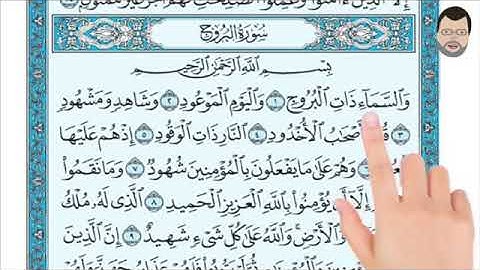 إِلَّا الَّذِينَ ءَامَنُوا وَعَمِلُوا الصَّٰلِحَٰتِ لَهُمْ أَجْرٌ غَيْرُ مَمْنُونٍ
سُورَةُ البُرُوجِ
بِسْمِ اللَّهِ الرَّحْمَٰنِ الرَّحِيمِ
وَالسَّمَآءِ ذَاتِ الْبُرُوجِ ١ وَالْيَوْمِ الْمَوْعُودِ ٢ وَشَاهِدٍ وَمَشْهُودٍ
٣ أَصْحَٰبُ الْأُخْدُودِ ٤ النَّارِ ذَاتِ الْوَقُودِ ٥ إِذْ هُمْ عَلَيْهَا
وَهُمْ عَلَىٰ مَا يَفْعَلُونَ بِالْمُؤْمِنِينَ شُهُودٌ ٧ وَمَا نَقَمُوا
إِلَّا أَن يُؤْمِنُوا بِاللَّهِ الْعَزِيزِ الْحَمِيدِ ٨ الَّذِي لَهُ مُلْكُ
وَالْأَرْضِ وَاللَّهُ عَلَىٰ كُلِّ شَيْءٍ شَهِيدٌ ٩ إِنَّ الَّذِينَ